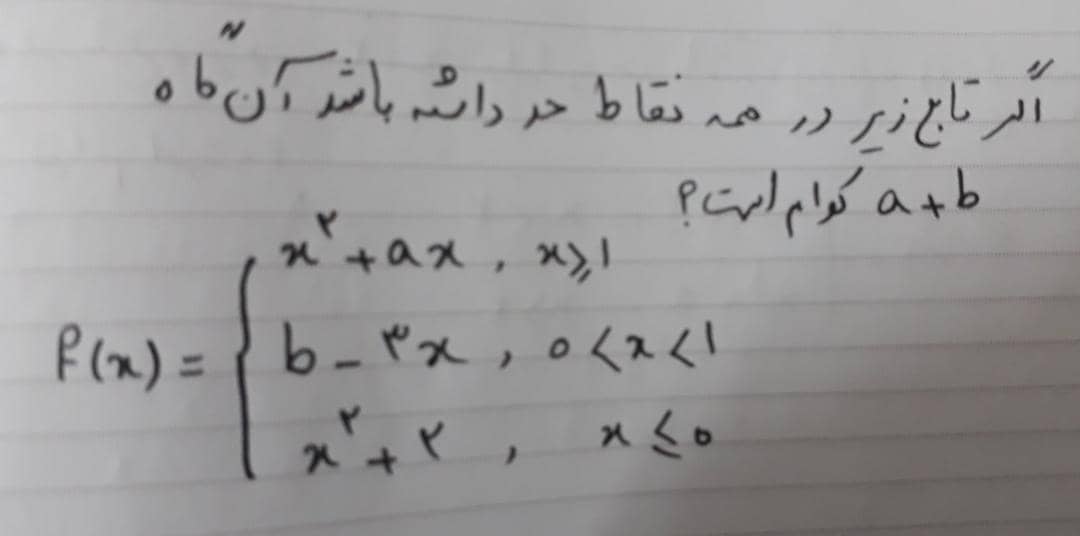 اگر تابع زیر در همه نقاط حد داشته باشد آن گاه
a+b کدام است؟
x²+ax , x≥۱
f(x) = { b-۳x , ۰<x<۱
x²+۲ , x≤۰